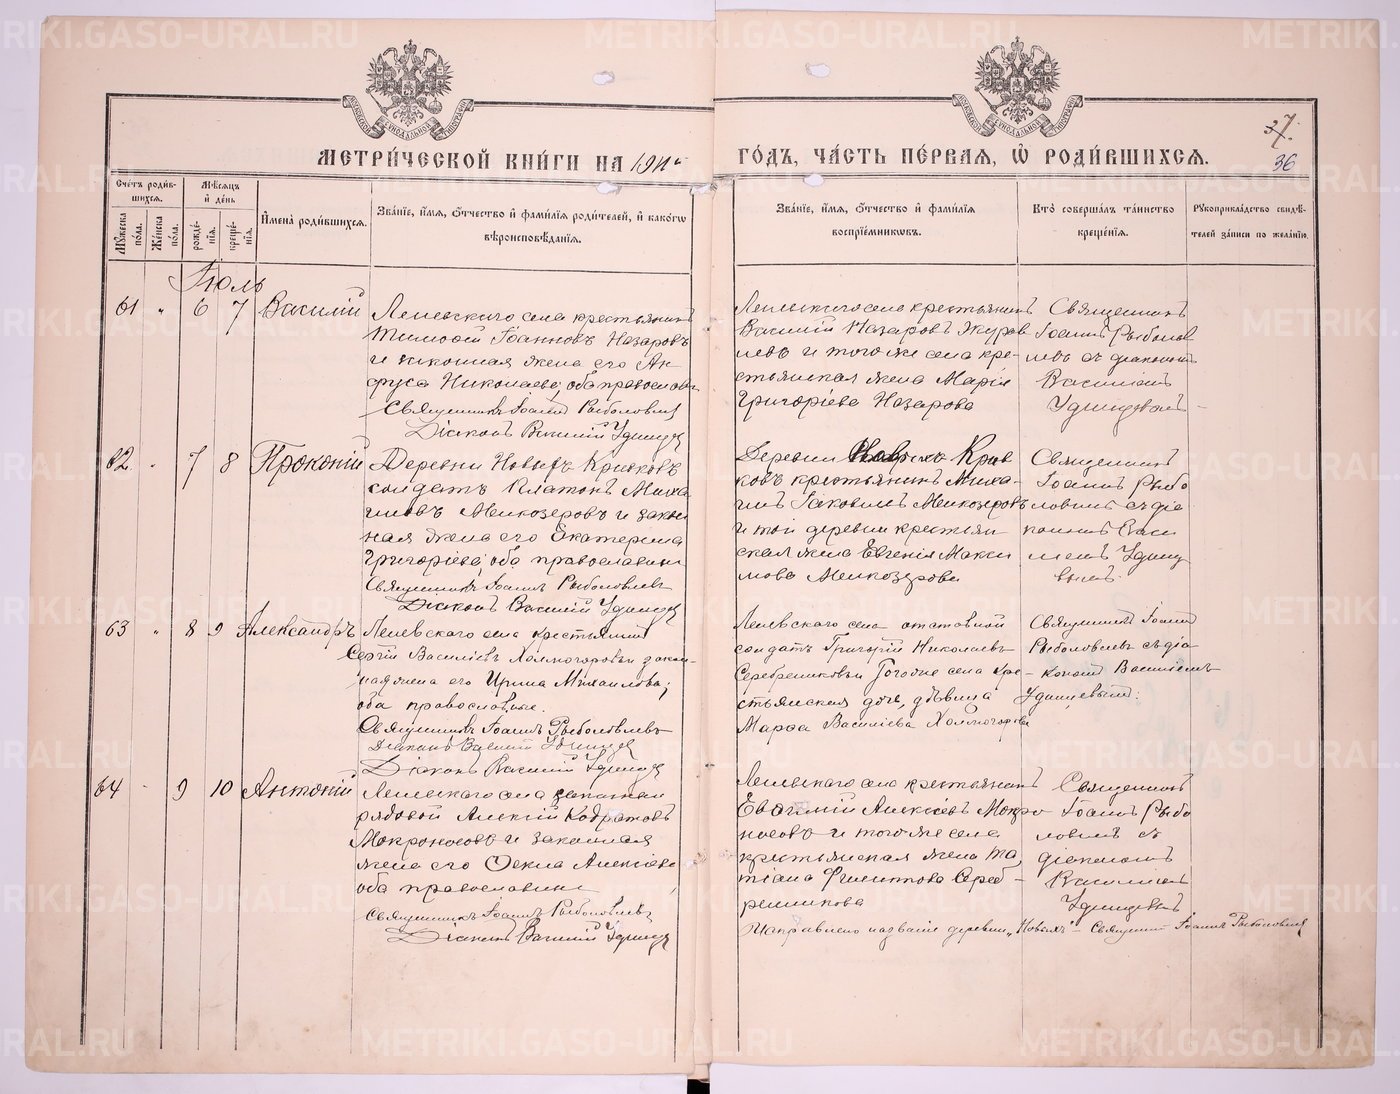 МЕТРИ́ЧЕСКОЙ КНИ́ГИ НА 1911й ГО́ДЪ, ЧА́СТЬ ПЕ́РВАЯ, Ѽ РОДИ́ВШИХСЯ.
37.
36
Сче́тъ роди́в-
шихся.
Му́жеска по́ла.
Же́нска по́ла.
Мѣ́сяцъ и҆ де́нь
рожде́нїя.
креще́нїя.
И҆мена̀ роди́вшихся.
Зва́нїе, и҆́мя, ѻ҆́тчество и҆ фами́лїя роди́телей, и҆ како́гѡ
вѣроисповѣ́данїя.
Зва́нїе, и҆́мя, ѻ҆́тчество и҆ фами́лїя
воспрїе́мниковъ.
Кто̀ соверша́лъ та́инство
креще́нїя.
Рукоприкла́дство свидѣ́-
телей за́писи по жела́нїю.
Іюль
61 " 6 7 Василій
Лелевскаго села крестьянинъ
Тимофей Іоанновъ Назаровъ
и законная жена его Ан-
фуса Николаева; оба православн
Священникъ Іоаннъ Рыболовлев
Діаконъ Василій Удинцев
Лелевскаго села крестьянинъ
Василій Назаровъ
и того же села кре-
стьянская жена Марія
Григоріева Назарова
Священникъ
Іоаннъ Рыболов
левъ съ діакономъ
Василіемъ
Удинцевымъ
62 " 7 8 Прокопій
Деревни Новыхъ Кривковъ
солдатъ Платонъ Миха
иловъ Мелкозеровъ и закон
ная жена его Екатерина
Григоріева; оба православны
Священникъ Іоаннъ Рыболовлевъ
Діаконъ Василій Удинцев
Деревни Новыхъ Крив
ковъ крестьянинъ Миха
илъ Іаковлевъ Мелкозеровъ
и той деревни крестьян
ская жена Евгенія Макси
мова Мелкозерова
Священникъ
Іоаннъ Рыбо
ловлевъ съ діа
кономъ Васи
ліемъ Удинц
вымъ
63 " 8 9 Александръ
Лелевскаго села крестьянинъ
Сергій Василіевъ Холмогоровъ и закон-
ная жена его Ирина Михаилова;
оба православные.
Священникъ Іоаннъ Рыболовлевъ
Діаконъ Василій Удинцев
Діаконъ Василій Удинцев
Лелевскаго села отставной
солдатъ Григорій Николаевъ
Серебренниковъ и того же села кре-
стьянская дочь, дѣвица
Марѳа Василіева Холмогорова
Священникъ Іоаннъ
Рыболовлевъ съ діа
кономъ Василіемъ
Удинцевымъ.
64 " 9 10 Антоній
Лелевскаго села запасный
рядовой Алексій Кодратовъ
Мокроносовъ и законная
жена его Ѳекла Алексіева
оба православны
Священникъ Іоаннъ Рыболовлевъ
Діаконъ Василій Удинцев
Лелевскаго села крестьянинъ
Евѳимій Алексіевъ Мокро
носовъ и того же села
крестьянская жена Та
тіана Филиппова Сереб-
ренникова
Священникъ
Іоаннъ Рыбо
ловлевъ съ
діакономъ
Василіемъ
Удинцевымъ
Исправлено названіе деревни „Новыхъ" – Священникъ Іоаннъ Рыболовлев
METRIKI.GASO-URAL.RU